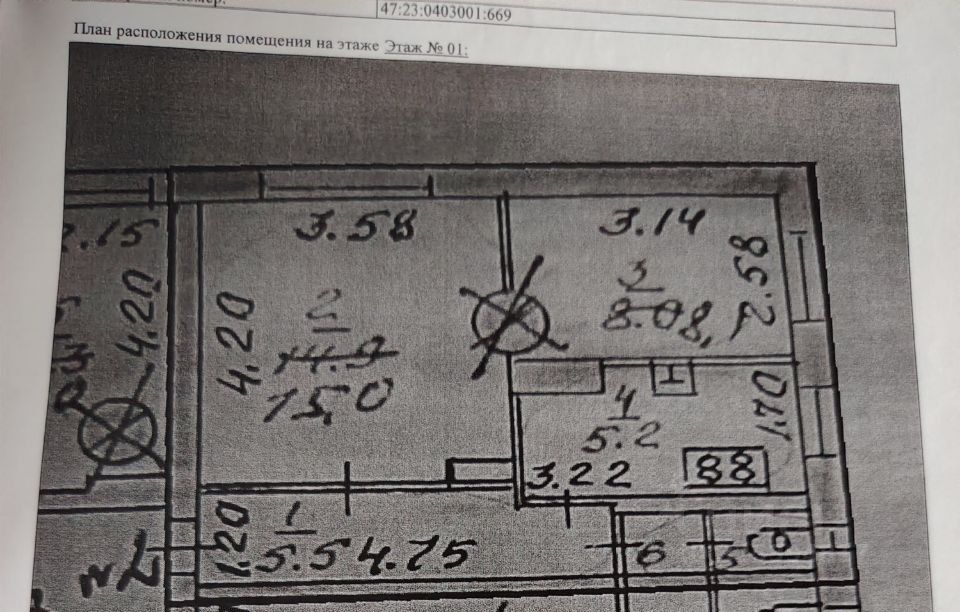 47:23:0403001:669
План расположения помещения на этаже Этаж № 01:
3.58
3.14
2.58
4.20
4.20
2
14.9
15,0
3
8.08,
1.70
4
5.2
3.22
1.20
1
5.5
4.75
6
5